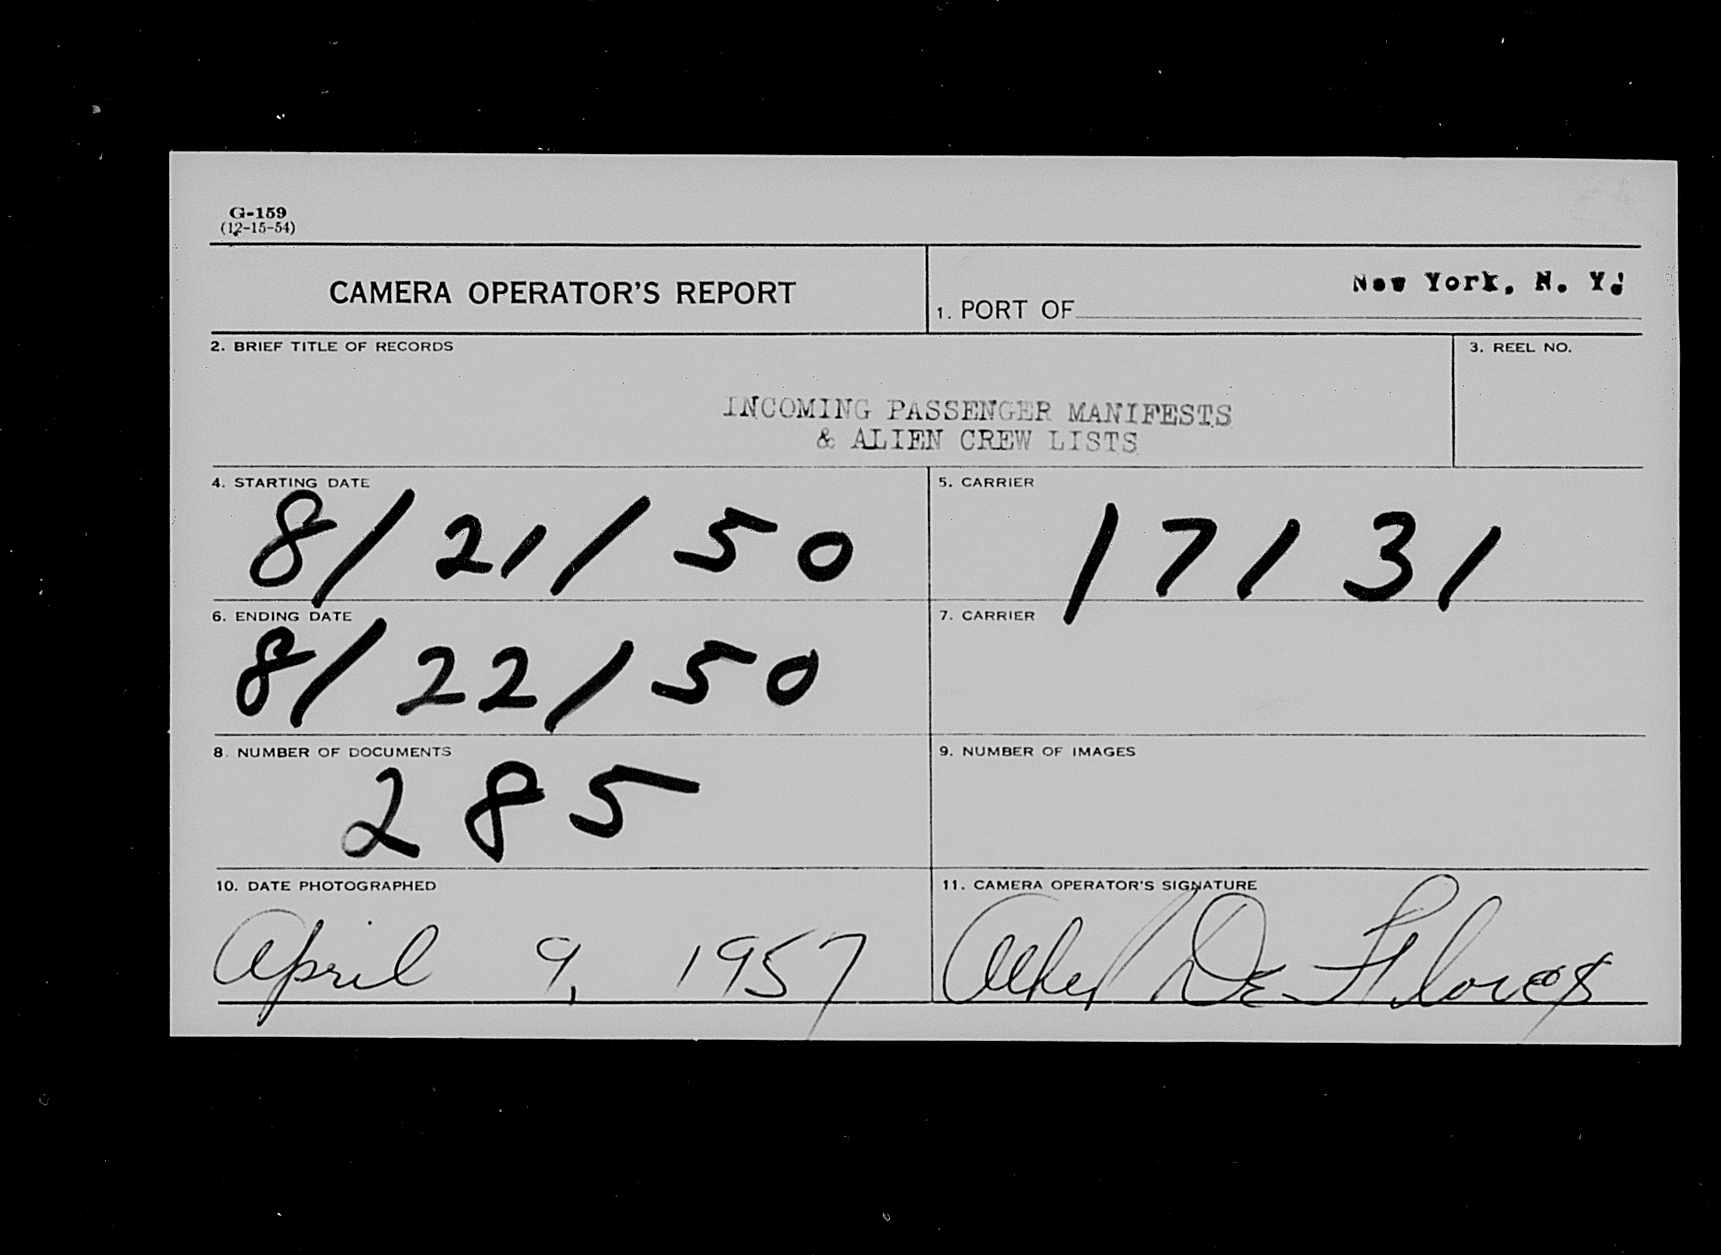 G-159
(12-15-54)
CAMERA OPERATOR'S REPORT
1. PORT OF New York, N. Y.
2. BRIEF TITLE OF RECORDS
3. REEL NO.
INCOMING PASSENGER MANIFESTS
& ALIEN CREW LISTS
4. STARTING DATE
8/21/50
5. CARRIER
17131
6. ENDING DATE
8/22/50
7. CARRIER
8. NUMBER OF DOCUMENTS
285
9. NUMBER OF IMAGES
10. DATE PHOTOGRAPHED
April 9, 1957
11. CAMERA OPERATOR'S SIGNATURE
De